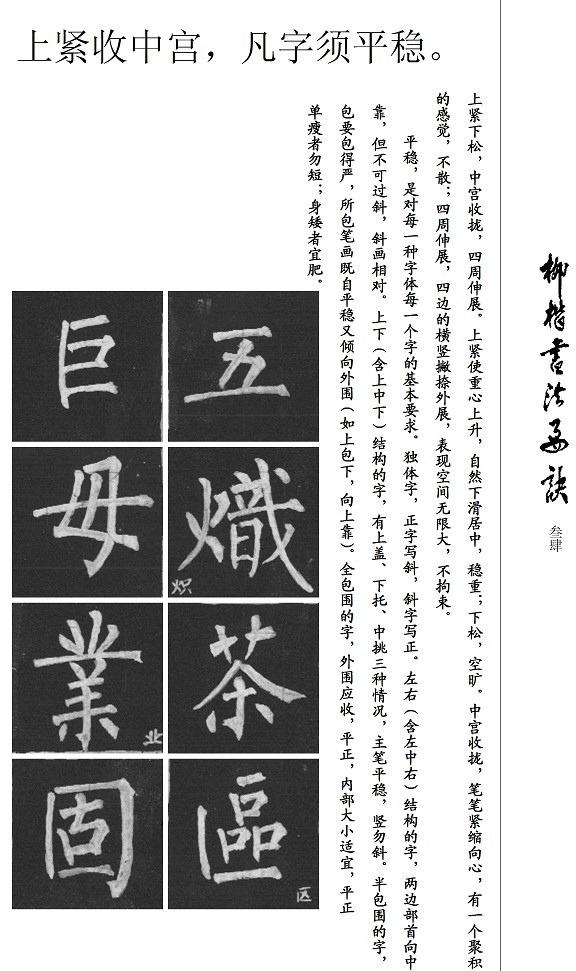 上紧收中宫，凡字须平稳。
上紧下松，中宫收拢，四周伸展。上紧使重心上升，自然下滑居中，稳重；下松，空旷。中宫收拢，笔笔紧缩向心，有一个聚积
的感觉，不散；四周伸展，四边的横竖撇捺外展，表现空间无限大，不拘束。
平稳，是对每一种字体每一个字的基本要求。独体字，正字写斜，斜字写正。左右（含左中右）结构的字，两边部首向中
靠，但不可过斜，斜画相对。上下（含上中下）结构的字，有上盖、下托、中挑三种情况，主笔平稳，竖勿斜。半包围的字，
包要包得严，所包笔画既自平稳又倾向外围（如上包下，向上靠）。全包围的字，外围应收，平正，内部大小适宜，平正
单瘦者勿短；身矮者宜肥。
五
熾
炽
茶
區
区
巨
毋
業
业
固
柳楷书法要诀
叁肆